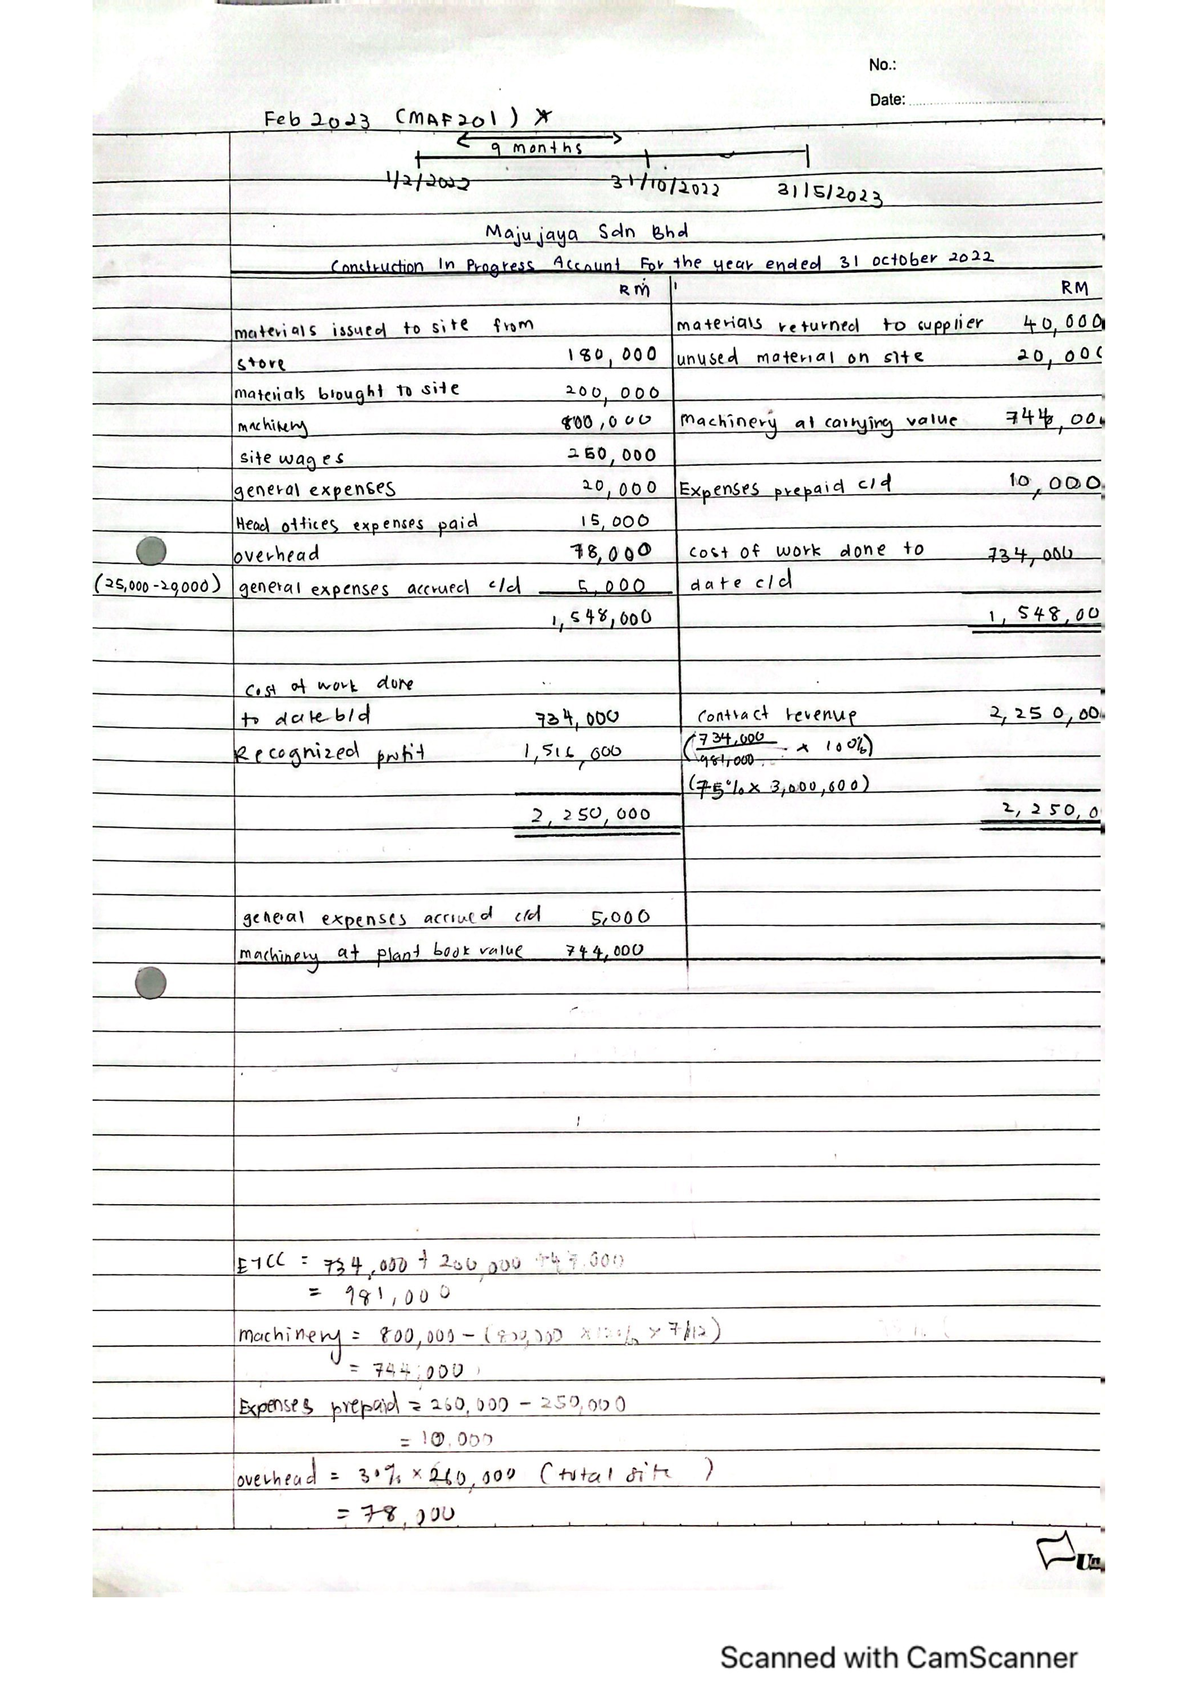 No.:
Date:
Feb 2023 (MAF201) *
9 months
1/2/2022 31/10/2022 31/5/2023
Majujaya Sdn Bhd
Construction In Progress Account For the year ended 31 october 2022
RM RM
materials issued to site from materials returned to supplier 40,000
store 180,000 unused material on site 20,00
materials brought to site 200,000
machinery 800,000 Machinery at carrying value 744,00
site wages 250,000
general expenses 20,000 Expenses prepaid c/d 10,000
Head offices expenses paid 15,000
overhead 78,000 cost of work done to 734,000
(25,000-20,000) general expenses accrued c/d 5,000 date c/d
1,548,000 1,548,00
Cost of work done
to date b/d 734,000 Contract revenue 2,250,00
Recognized profit 1,516,000 (734,000/981,000 x 100%)
(75% x 3,000,000)
2,250,000 2,250,0
general expenses accrued c/d 5,000
machinery at plant book value 744,000
ETCC = 734,000 + 200,000 + 47,000
= 981,000
machinery = 800,000 - (800,000 x x 7/12)
= 744,000
Expenses prepaid = 260,000 - 250,000
= 10,000
overhead = 30% x 260,000 (total site )
= 78,000
Un
Scanned with CamScanner